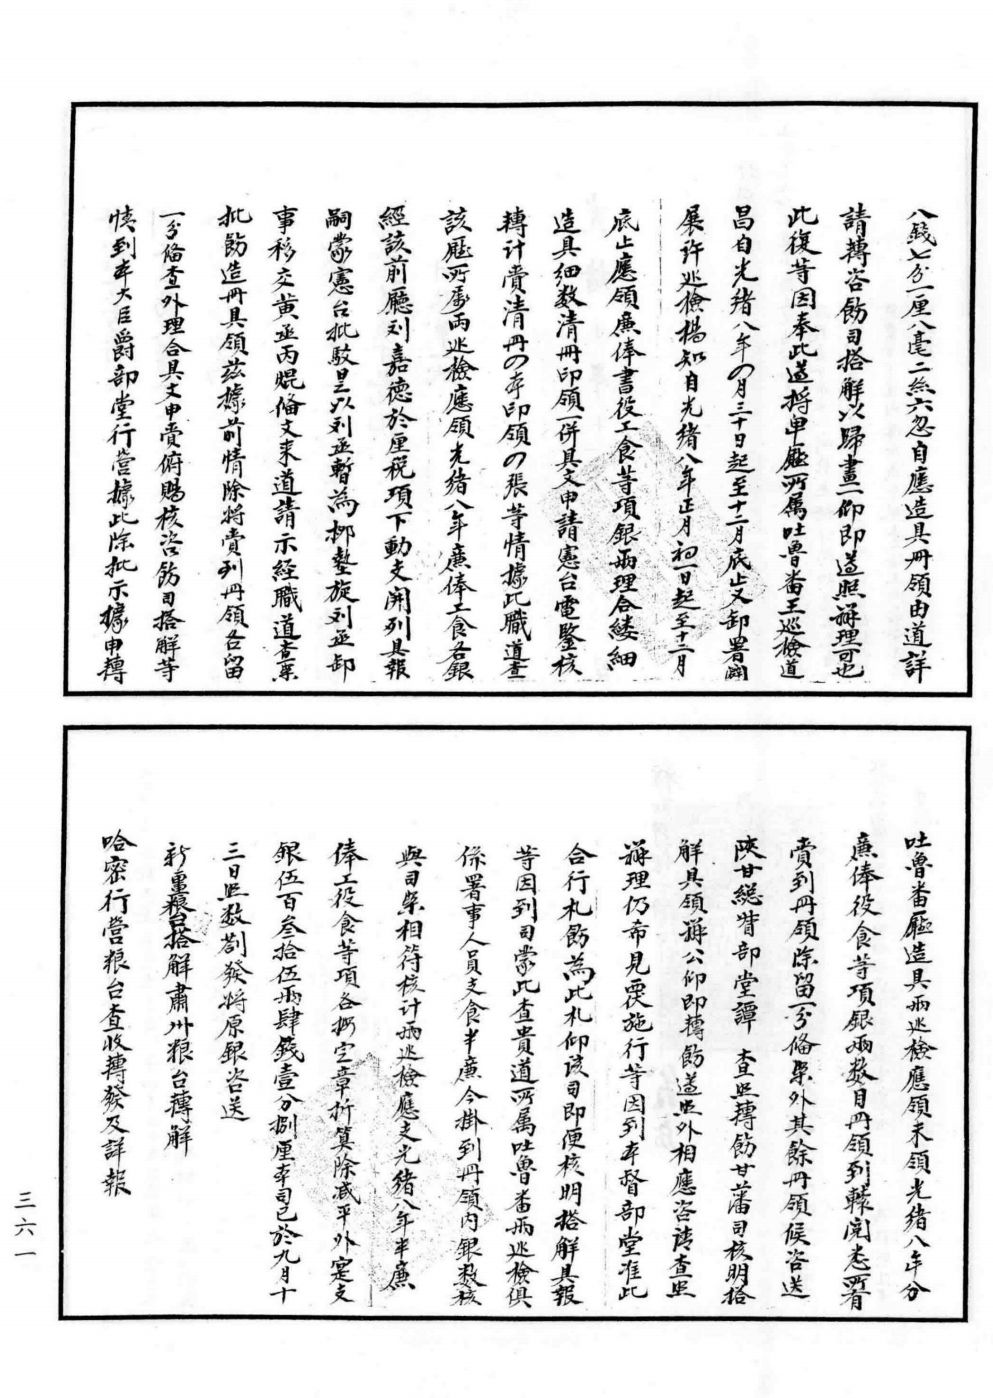 八錢七分一厘八毫二絲六忽自應造具冊領由道詳
請轉咨飭司搭解以歸畫一仰即遵照辦理可也
此復等因奉此遵將卑廳所屬吐魯番王巡檢道
昌自光緒八年四月三十日起至十二月底止又卸署闢
展許巡檢楊知自光緒八年正月初一日起至十二月
底止應領廉俸書役工食等項銀兩理合縷細
造具細數清冊印領一併具文申請憲台電鑒核
轉計賫清冊四本印領四張等情據此職道查
該廳所屬兩巡檢應領光緒八年廉俸工食各銀
經該前廳刘嘉德於厘稅項下動支開列具報
嗣蒙憲台批駁是以刘丞暫為挪墊旋刘丞卸
事移交黃丞丙焜備文来道請示經職道查案
批飭造冊具領茲據前情除將賫到冊領各留
一分備查外理合具文申賫俯賜核咨飭司搭解等
情到本大臣爵部堂行營據此除批示據申轉
吐魯番廳造具兩巡檢應領未領光緒八年分
廉俸役食等項銀兩數目冊領到轅閱悉所有
賫到冊領除留一分備案外其餘冊領候咨送
陝甘総督部堂譚　查照轉飭甘藩司核明搭
解具領辦公仰即轉飭遵照外相應咨請查照
辦理仍希見覆施行等因到本督部堂准此
合行札飭為此札仰該司即便核明搭解具報
等因到司蒙此查貴道所属吐魯番兩巡檢俱
係署事人員支食半廉今掛到冊領內銀數核
與司案相符核計兩巡檢應支光緒八年半廉
俸工役食等項各按定章折算除减平外寔支
銀伍百叁拾伍兩肆錢壹分捌厘本司已於九月十
三日照数劄發將原銀咨送
新畺粮台搭解肅州粮台轉解
哈密行營粮台查收轉發及詳報
三六一